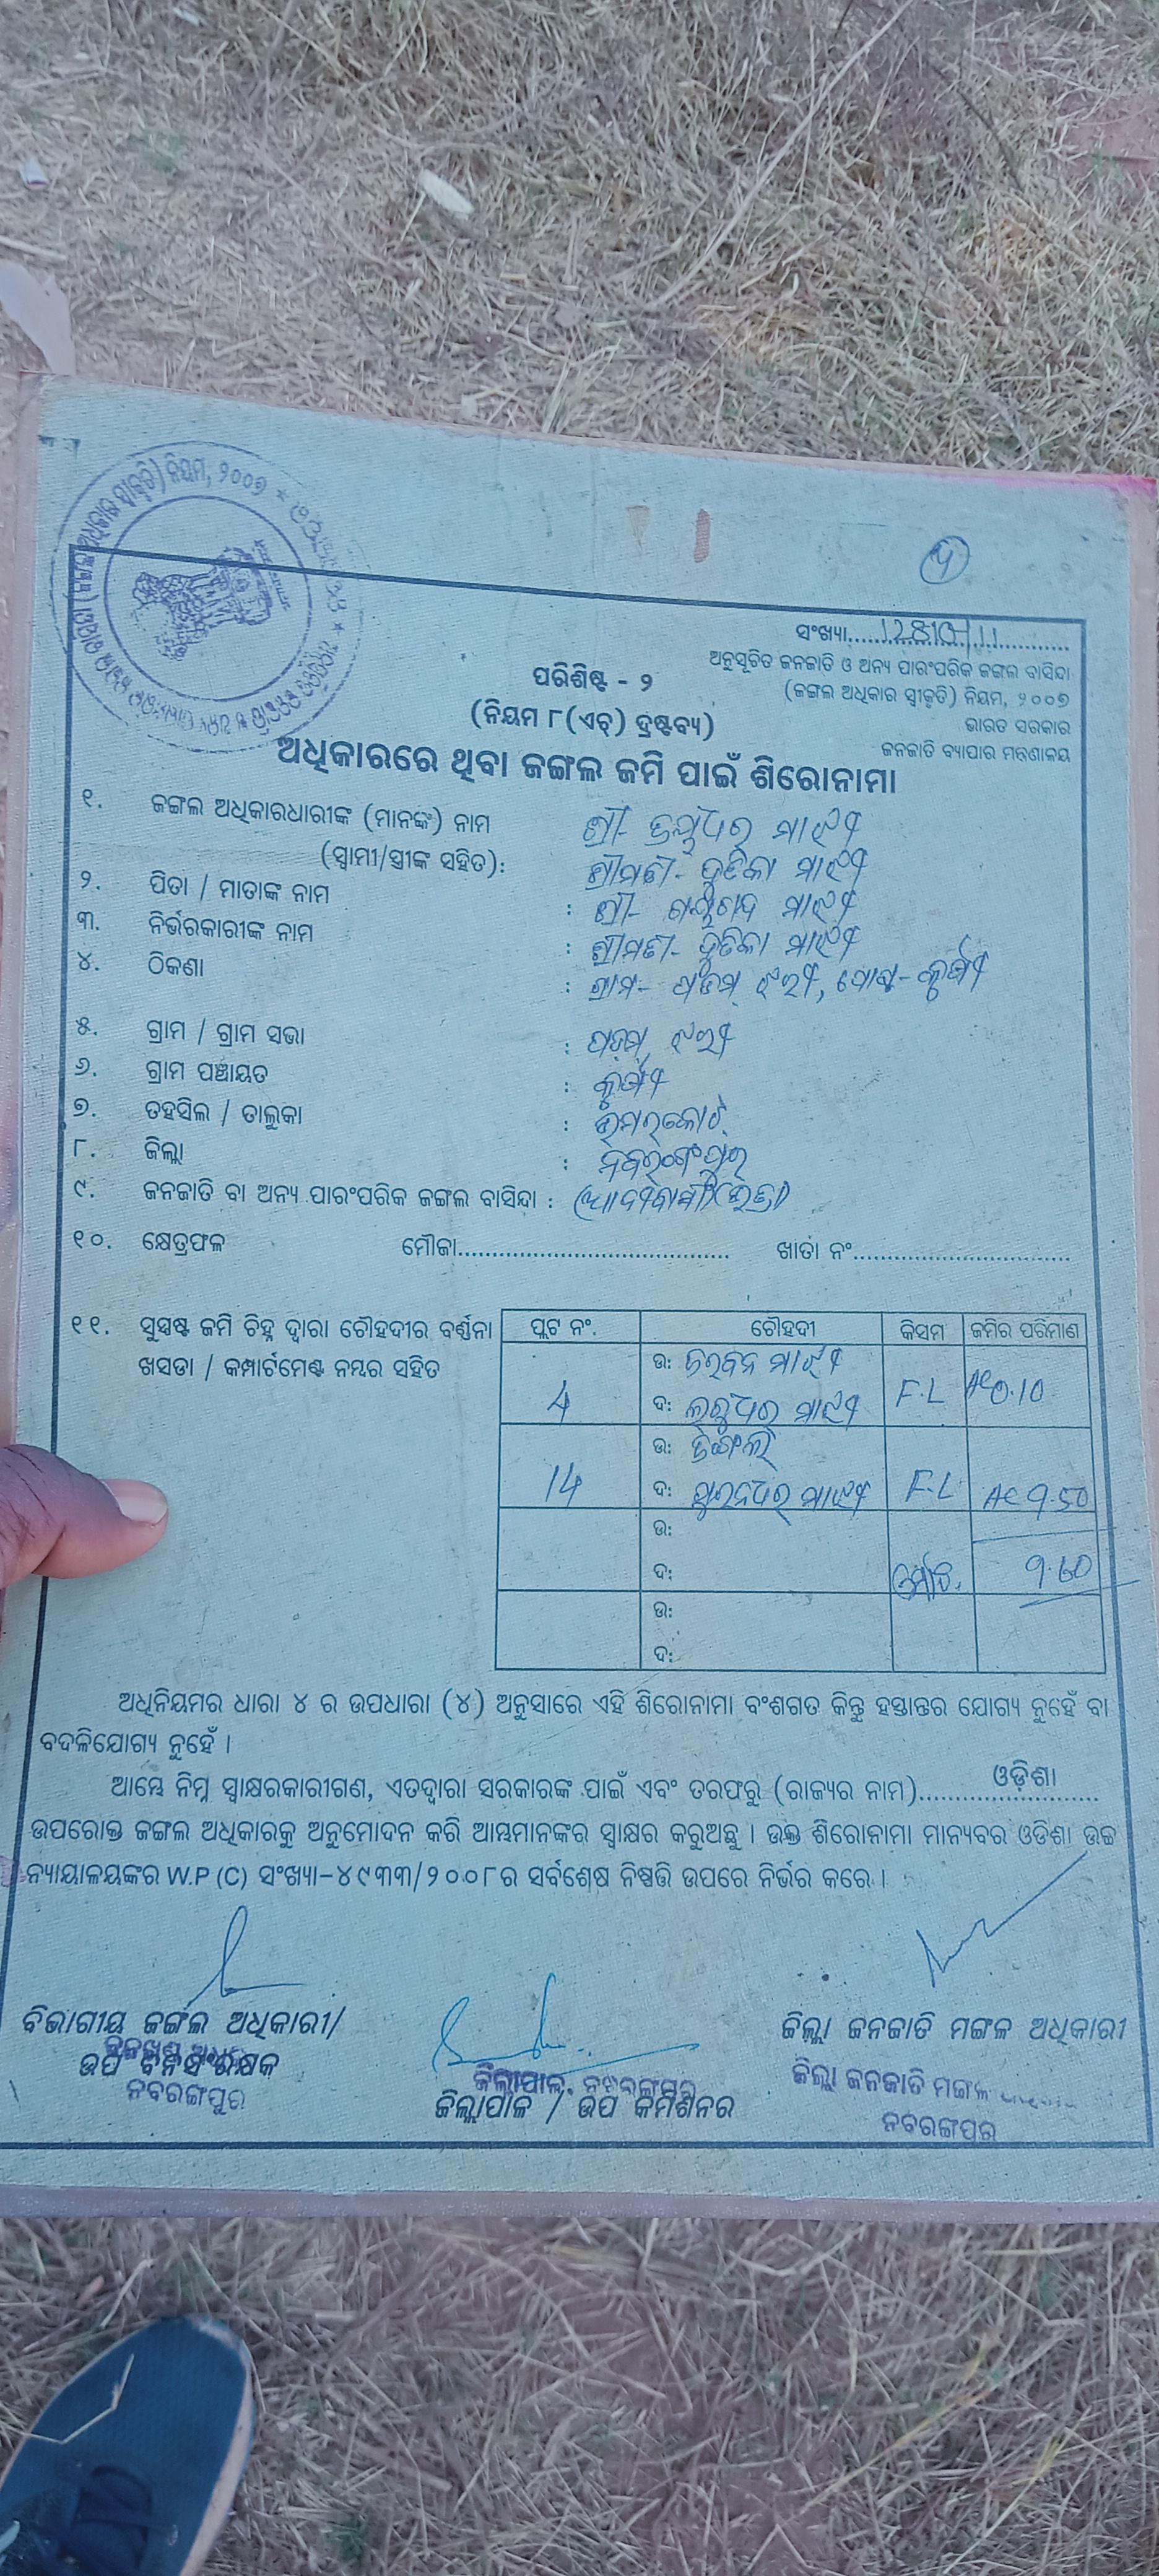 ସଂଖ୍ୟା
ଅନୁସୂଚିତ ଜନଜାତି ଓ ଅନ୍ୟ ପାରଂପରିକ ଜଙ୍ଗଲ ବାସିନ୍ଦା
(ଜଙ୍ଗଲ ଅଧିକାର ସ୍ୱୀକୃତି) ନିୟମ, ୨୦୦୭
ଭାରତ ସରକାର
ଜନଜାତି ବ୍ୟାପାର ମନ୍ତ୍ରଣାଳୟ
ପରିଶିଷ୍ଟ - ୨
(ନିୟମ ୮(ଏଚ୍) ଦ୍ରଷ୍ଟବ୍ୟ)
ଅଧିକାରରେ ଥିବା ଜଙ୍ଗଲ ଜମି ପାଇଁ ଶିରୋନାମା
୧. ଜଙ୍ଗଲ ଅଧିକାରଧାରୀଙ୍କ (ମାନଙ୍କ) ନାମ ଶ୍ରୀ- ମାଝୀ
(ସ୍ୱାମୀ/ସ୍ତ୍ରୀଙ୍କ ସହିତ): ଶ୍ରୀମତୀ- ମାଝୀ
୨. ପିତା / ମାତାଙ୍କ ନାମ : ଶ୍ରୀ- ମାଝୀ
୩. ନିର୍ଭରକାରୀଙ୍କ ନାମ : ଶ୍ରୀମତୀ- ମାଝୀ
୪. ଠିକଣା : ଗ୍ରାମ- ପୋଷ୍ଟ-
୫. ଗ୍ରାମ / ଗ୍ରାମ ସଭା :
୬. ଗ୍ରାମ ପଞ୍ଚାୟତ :
୭. ତହସିଲ / ତାଲୁକା : ଉମରକୋଟ
୮. ଜିଲ୍ଲା : ନବରଂଗପୁର
୯. ଜନଜାତି ବା ଅନ୍ୟ ପାରଂପରିକ ଜଙ୍ଗଲ ବାସିନ୍ଦା :
୧୦. କ୍ଷେତ୍ରଫଳ ମୌଜା ଖାତା ନଂ
୧୧. ସୁସ୍ପଷ୍ଟ ଜମି ଚିହ୍ନ ଦ୍ୱାରା ଚୌହଦୀର ବର୍ଣ୍ଣନା
ଖସଡା / କମ୍ପାର୍ଟମେଣ୍ଟ ନମ୍ବର ସହିତ
ପ୍ଲଟ ନଂ. ଚୌହଦୀ କିସମ ଜମିର ପରିମାଣ
ଉ: ମାଝୀ
4 ଦ: ମାଝୀ F.L 0.10
ଉ:
14 ଦ: ମାଝୀ F.L Ac 9.50
ଉ:
ଦ: ମୋଟ. 9.60
ଉ:
ଦ:
ଅଧିନିୟମର ଧାରା ୪ ର ଉପଧାରା (୪) ଅନୁସାରେ ଏହି ଶିରୋନାମା ବଂଶଗତ କିନ୍ତୁ ହସ୍ତାନ୍ତର ଯୋଗ୍ୟ ନୁହେଁ ବା
ବଦଳିଯୋଗ୍ୟ ନୁହେଁ ।
ଆମ୍ଭେ ନିମ୍ନ ସ୍ୱାକ୍ଷରକାରୀଗଣ, ଏତଦ୍ୱାରା ସରକାରଙ୍କ ପାଇଁ ଏବଂ ତରଫରୁ (ରାଜ୍ୟର ନାମ) ଓଡ଼ିଶା
ଉପରୋକ୍ତ ଜଙ୍ଗଲ ଅଧିକାରକୁ ଅନୁମୋଦନ କରି ଆମ୍ଭମାନଙ୍କର ସ୍ୱାକ୍ଷର କରୁଅଛୁ । ଉକ୍ତ ଶିରୋନାମା ମାନ୍ୟବର ଓଡିଶା ଉଚ୍ଚ
ନ୍ୟାୟାଳୟଙ୍କର W.P (C) ସଂଖ୍ୟା-୪୯୩୩/୨୦୦୮ର ସର୍ବଶେଷ ନିଷ୍ପତ୍ତି ଉପରେ ନିର୍ଭର କରେ ।
ବିଭାଗୀୟ ଜଙ୍ଗଲ ଅଧିକାରୀ/
ଉପ ବନସଂରକ୍ଷକ
ନବରଙ୍ଗପୁର
ଜିଲ୍ଲାପାଳ, ନବରଙ୍ଗପୁର
ଜିଲ୍ଲାପାଳ / ଉପ କମିଶନର
ଜିଲ୍ଲା ଜନଜାତି ମଙ୍ଗଳ ଅଧିକାରୀ
ଜିଲ୍ଲା ଜନଜାତି ମଙ୍ଗଳ
ନବରଙ୍ଗପୁର